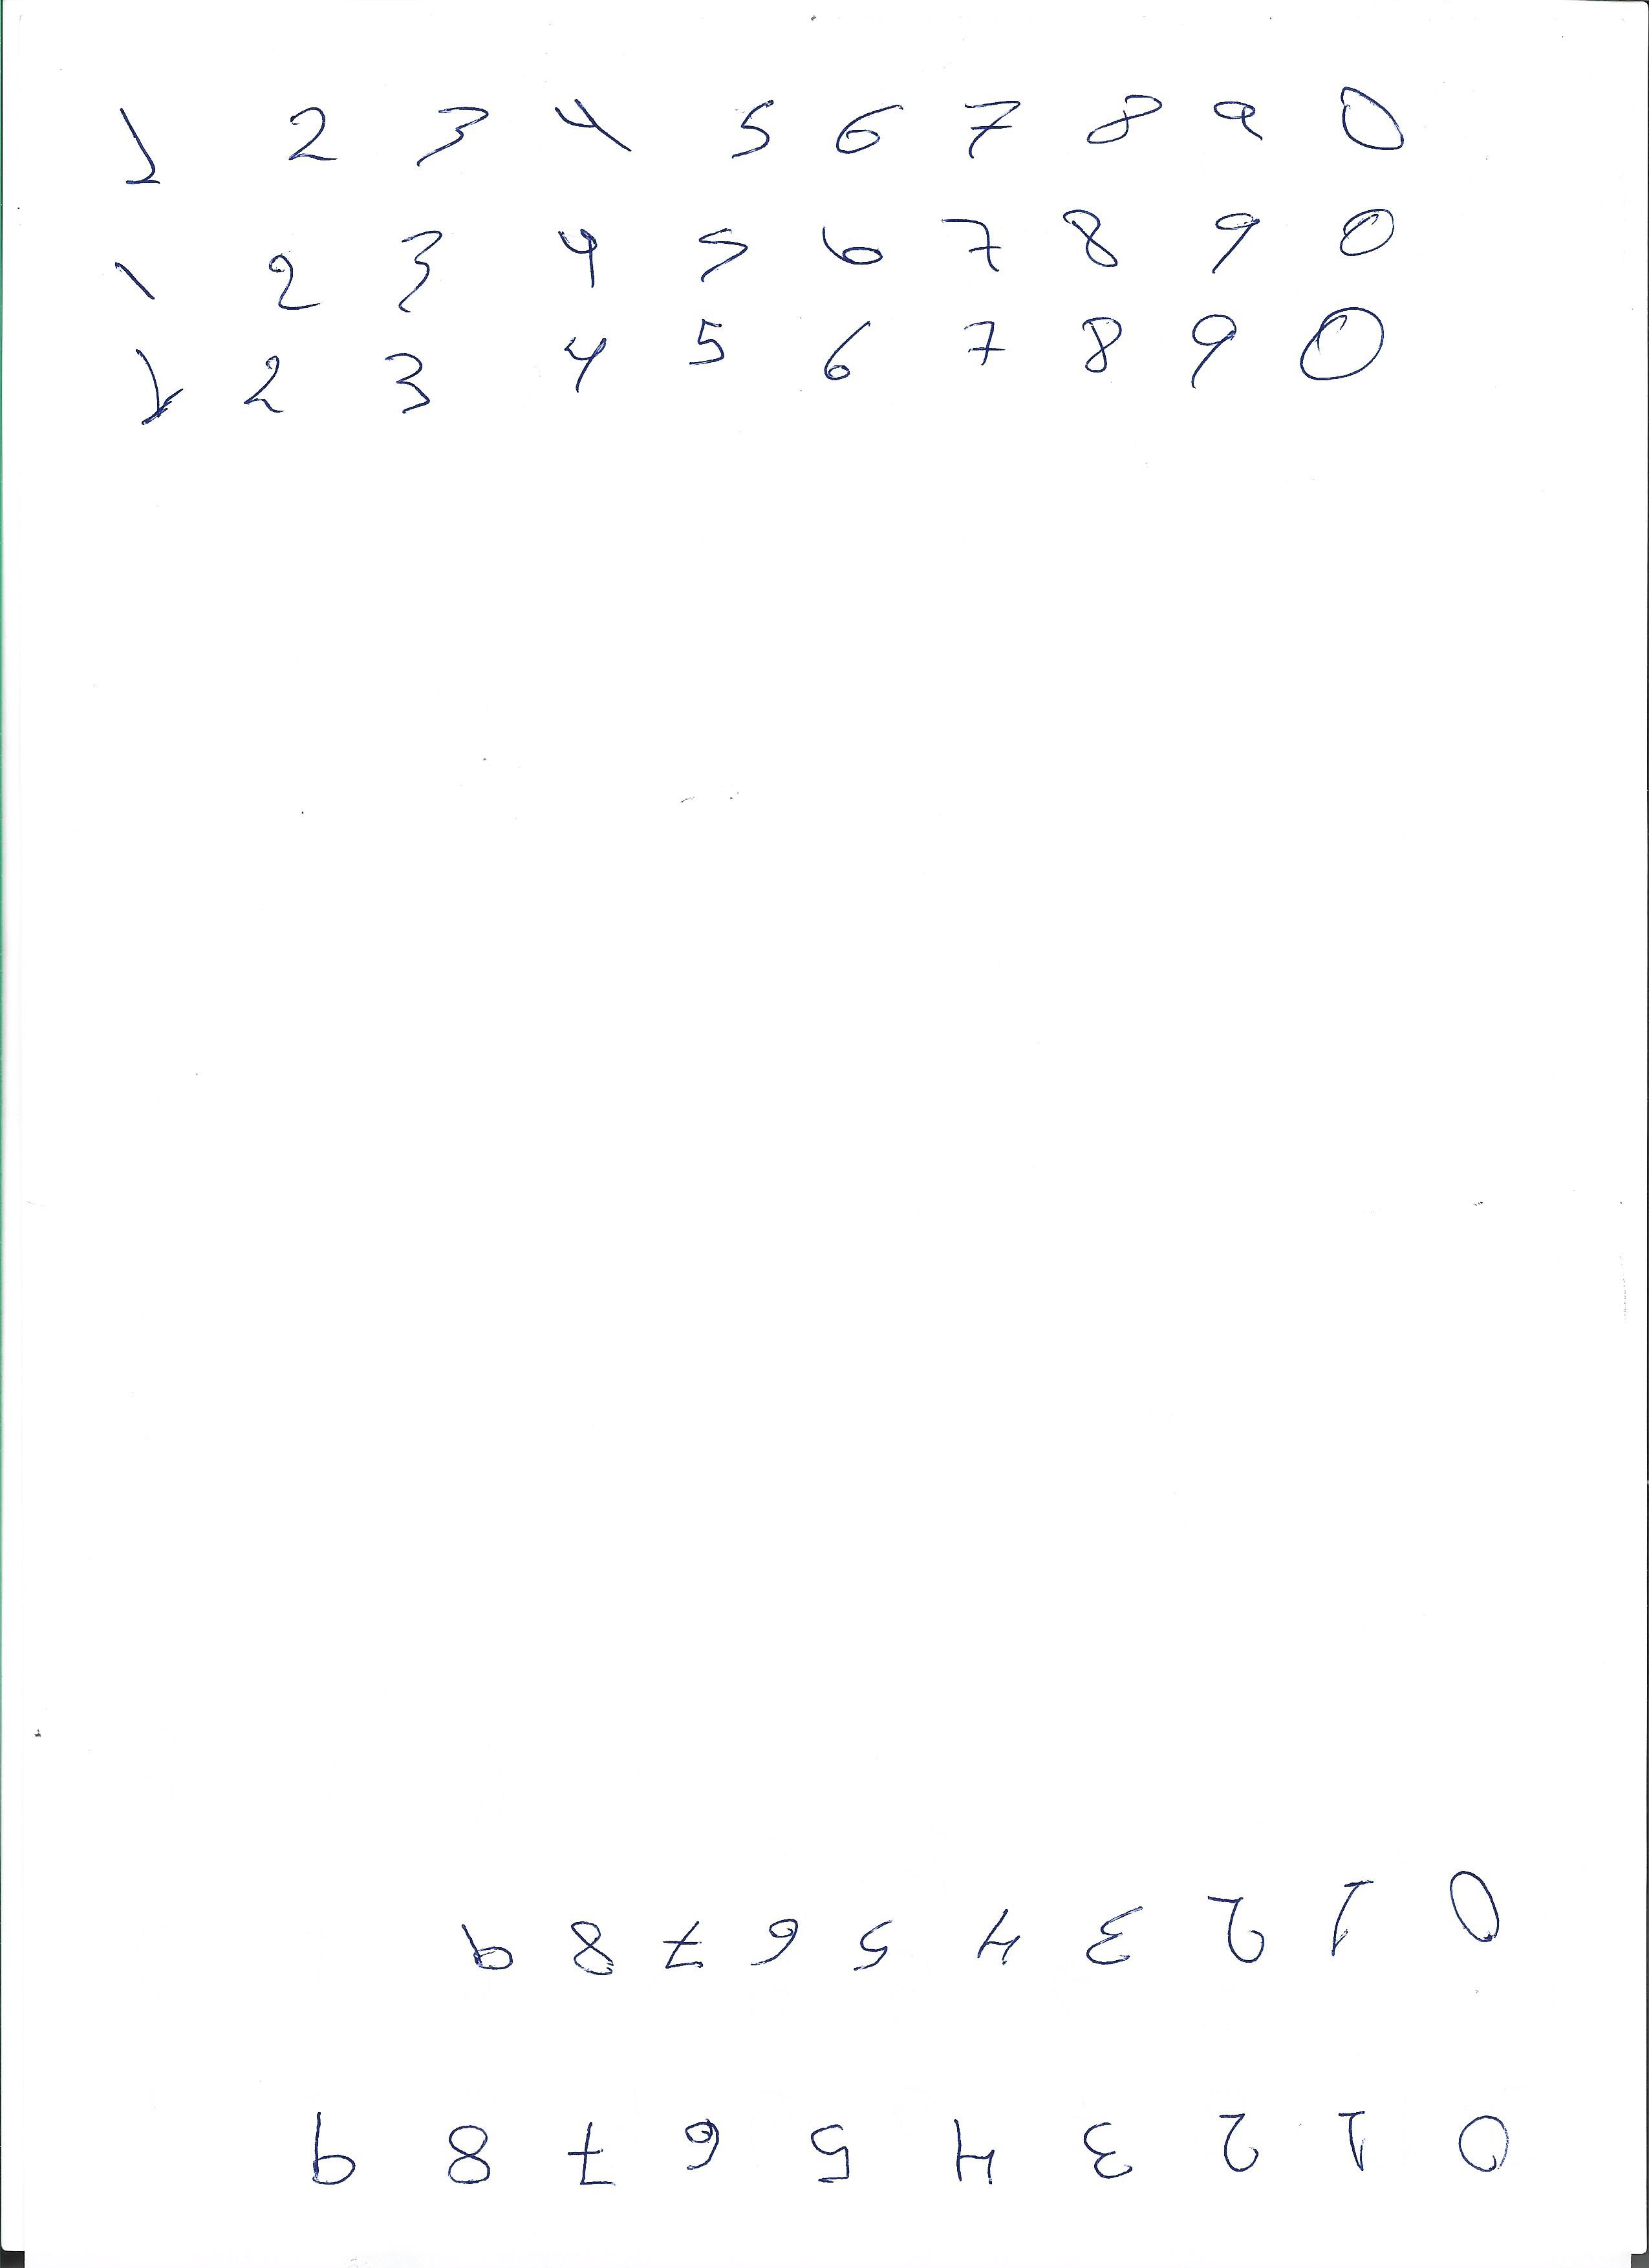 1 2 3 4 5 6 7 8 9 0
1 2 3 4 5 6 7 8 9 0
1 2 3 4 5 6 7 8 9 0
0 1 2 3 4 5 6 7 8 9
0 1 2 3 4 5 6 7 8 9